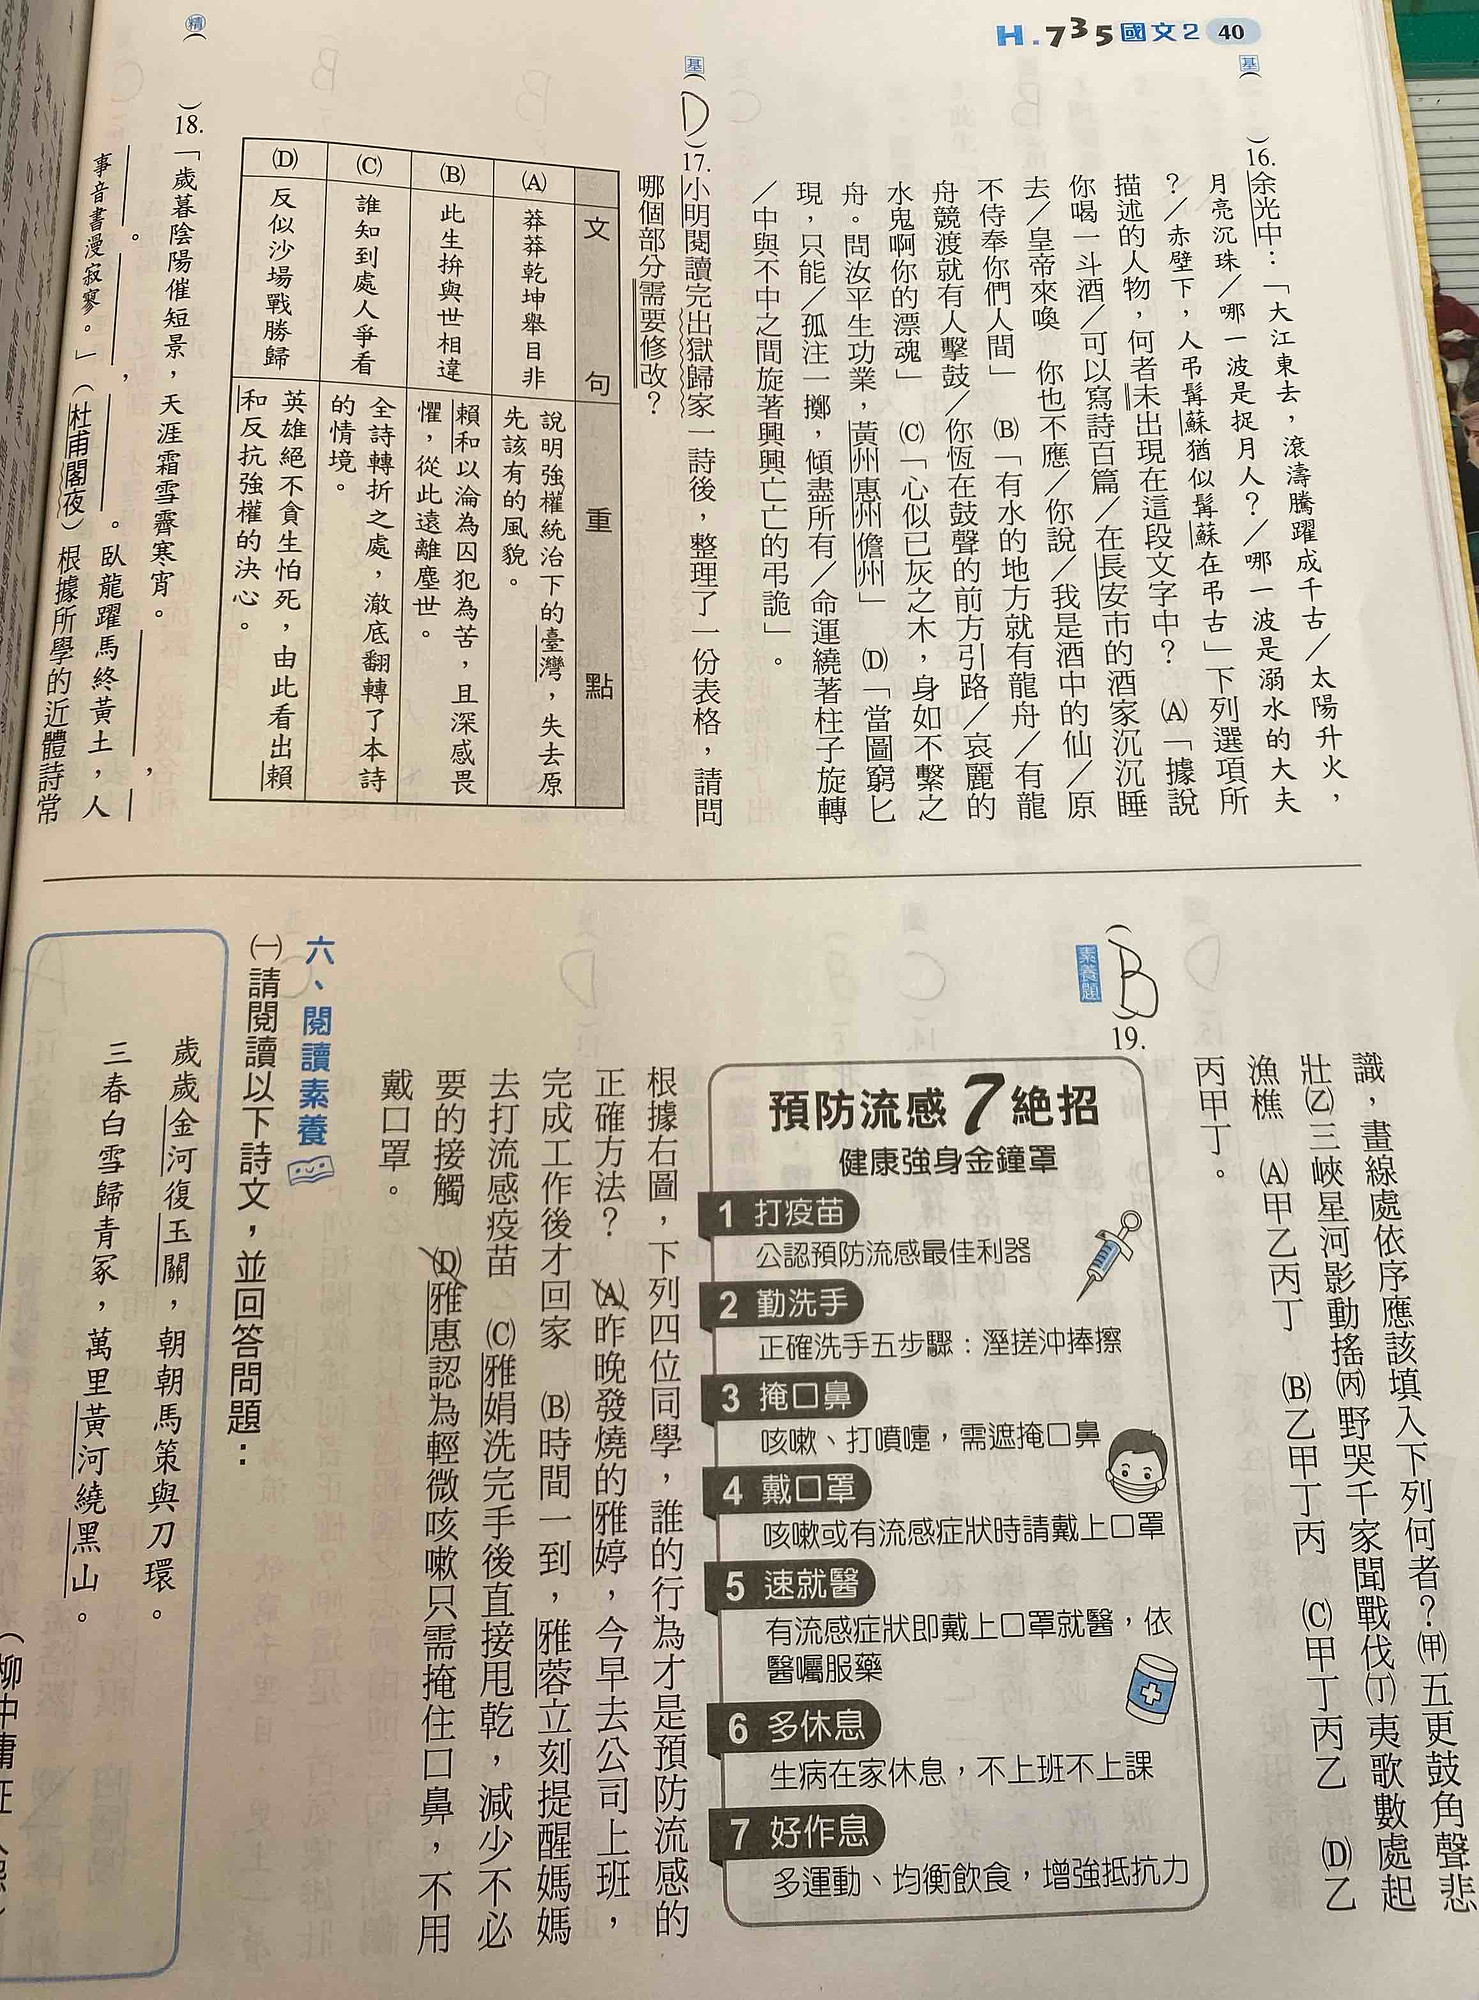 H.735國文2 40
基(　)16.余光中：「大江東去，滾濤騰躍成千古／太陽升火，
月亮沉珠／哪一波是捉月人？／哪一波是溺水的大夫
？／赤壁下，人弔髯蘇猶似髯蘇在弔古」下列選項所
描述的人物，何者未出現在這段文字中？　(A)「據說
你喝一斗酒／可以寫詩百篇／在長安市的酒家沉沉睡
去／皇帝來喚　你也不應／你說／我是酒中的仙／原
不侍奉你們人間」　(B)「有水的地方就有龍舟／有龍
舟競渡就有人擊鼓／你恆在鼓聲的前方引路／哀麗的
水鬼啊你的漂魂」　(C)「心似已灰之木，身如不繫之
舟。問汝平生功業，黃州惠州儋州」　(D)「當圖窮匕
現，只能／孤注一擲，傾盡所有／命運繞著柱子旋轉
／中與不中之間旋著興興亡亡的弔詭」。
基(D)17.小明閱讀完出獄歸家一詩後，整理了一份表格，請問
哪個部分需要修改？
文句　重點
(A)　莽莽乾坤舉目非　說明強權統治下的臺灣，失去原
先該有的風貌。
(B)　此生拚與世相違　賴和以淪為囚犯為苦，且深感畏
懼，從此遠離塵世。
(C)　誰知到處人爭看　全詩轉折之處，澈底翻轉了本詩
的情境。
(D)　反似沙場戰勝歸　英雄絕不貪生怕死，由此看出賴
和反抗強權的決心。
精(　)18.「歲暮陰陽催短景，天涯霜雪霽寒宵。＿＿＿，
＿＿＿。＿＿＿，＿＿＿。臥龍躍馬終黃土，人
事音書漫寂寥。」（杜甫閣夜）根據所學的近體詩常
識，畫線處依序應該填入下列何者？(甲)五更鼓角聲悲
壯(乙)三峽星河影動搖(丙)野哭千家聞戰伐(丁)夷歌數處起
漁樵　(A)甲乙丙丁　(B)乙甲丁丙　(C)甲丁丙乙　(D)乙
丙甲丁。
素養題
(B)19.
預防流感7絕招
健康強身金鐘罩
1 打疫苗
公認預防流感最佳利器
2 勤洗手
正確洗手五步驟：溼搓沖捧擦
3 掩口鼻
咳嗽、打噴嚏，需遮掩口鼻
4 戴口罩
咳嗽或有流感症狀時請戴上口罩
5 速就醫
有流感症狀即戴上口罩就醫，依
醫囑服藥
6 多休息
生病在家休息，不上班不上課
7 好作息
多運動、均衡飲食，增強抵抗力
根據右圖，下列四位同學，誰的行為才是預防流感的
正確方法？　(A)昨晚發燒的雅婷，今早去公司上班，
完成工作後才回家　(B)時間一到，雅蓉立刻提醒媽媽
去打流感疫苗　(C)雅娟洗完手後直接甩乾，減少不必
要的接觸　(D)雅惠認為輕微咳嗽只需掩住口鼻，不用
戴口罩。
六、閱讀素養
㈠請閱讀以下詩文，並回答問題：
歲歲金河復玉關，朝朝馬策與刀環。
三春白雪歸青冢，萬里黃河繞黑山。
（柳中庸征人怨）